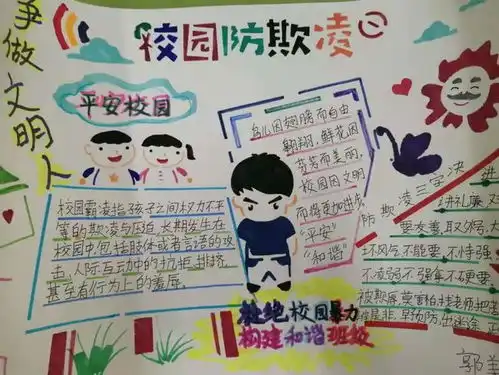 校园防欺凌
争做文明人
平安校园
鸟儿因翅膀而自由
翱翔,鲜花因
芬芳而美丽,
校园因文明
而将更加进步,
"平安"
"和谐"
校园霸凌指孩子之间权力不平
等的欺凌与
长期发生在
校园中,包括肢体或者言语的攻
击、人际互动中的抗拒排挤,
甚至有行为上的羞辱。
防欺凌三字决
讲礼廉
要友善,取
坏风气,不能要,不恃强
不凌弱,不强拿,不硬要
被欺辱,莫害怕,找老师,把
是非,早预防
杜绝校园暴力
构建和谐班级
郭